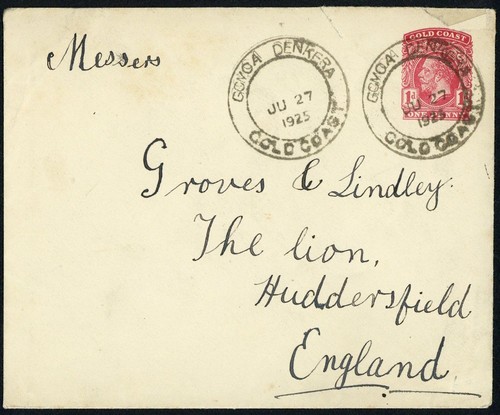 Messers
GOMOA DENKERA
JU 27
1925
GOLD COAST
GOLD COAST
1d 1d
ONE PENNY
GOMOA DENKERA
JU 27
1925
GOLD COAST
Groves & Lindley.
The lion,
Huddersfield
England.